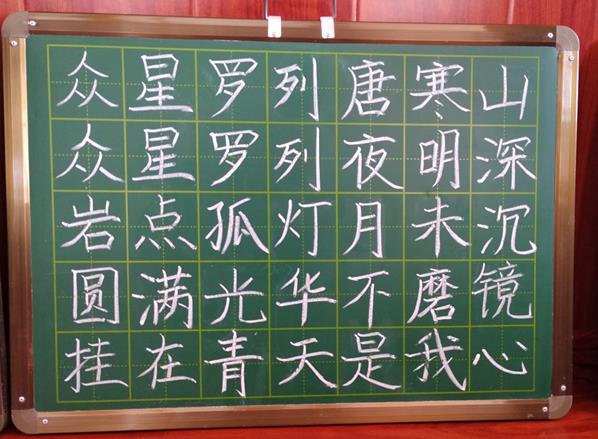 众星罗列唐寒山
众星罗列夜明深
岩点孤灯月未沉
圆满光华不磨镜
挂在青天是我心